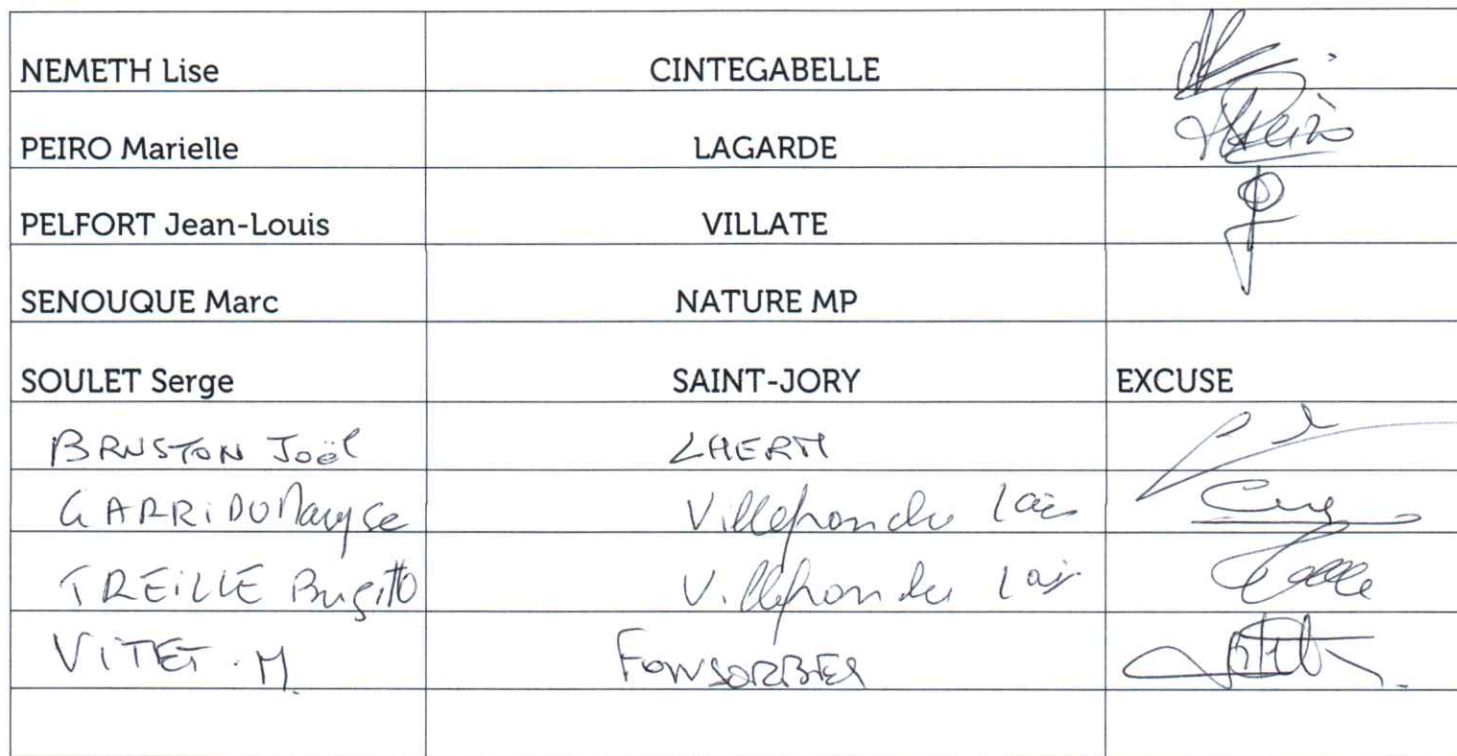 NEMETH Lise CINTEGABELLE
PEIRO Marielle LAGARDE Peiro
PELFORT Jean-Louis VILLATE
SENOUQUE Marc NATURE MP
SOULET Serge SAINT-JORY EXCUSE
BRUSTON Joël LHERM
GARRIDO Maryse
TREILLE Brigitte
VITET. M. FONSORBES